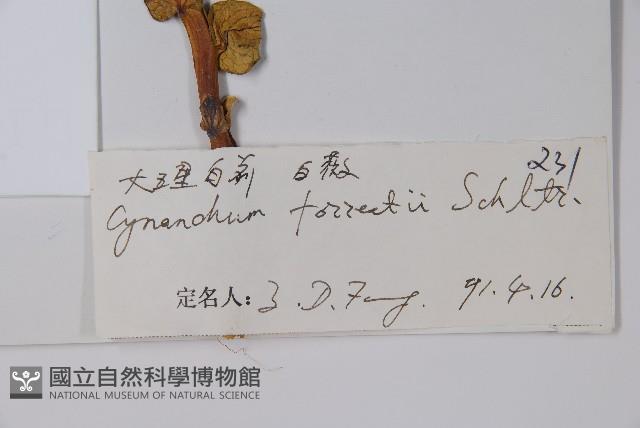 231
大理白前 白薇
Cynanchum forrestii Schltr.
定名人: Z. D. Fang. 91.4.16.
國立自然科學博物館
NATIONAL MUSEUM OF NATURAL SCIENCE